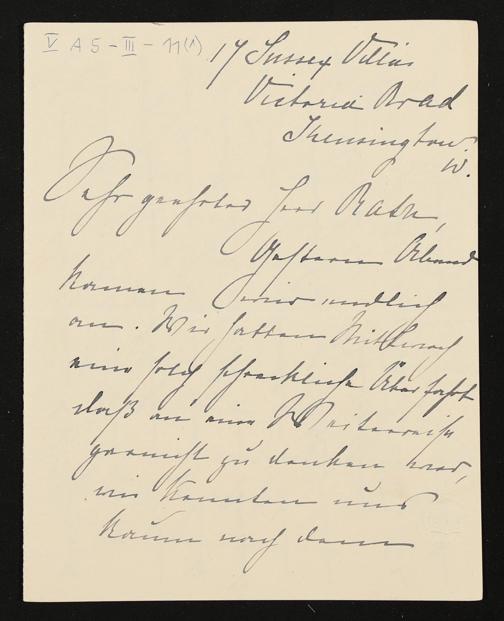 V A 5 - III - 11(1)
17 Sussex Villas
Victoria Road
Kensington
W.
Sehr geehrter Herr Rath,
Gestern Abend
kamen wir endlich
an. Wir hatten Mittwoch
eine solch schreckliche Überfahrt
daß an eine Weiterreise
garnicht zu denken war,
wir konnten uns
kaum nach dem